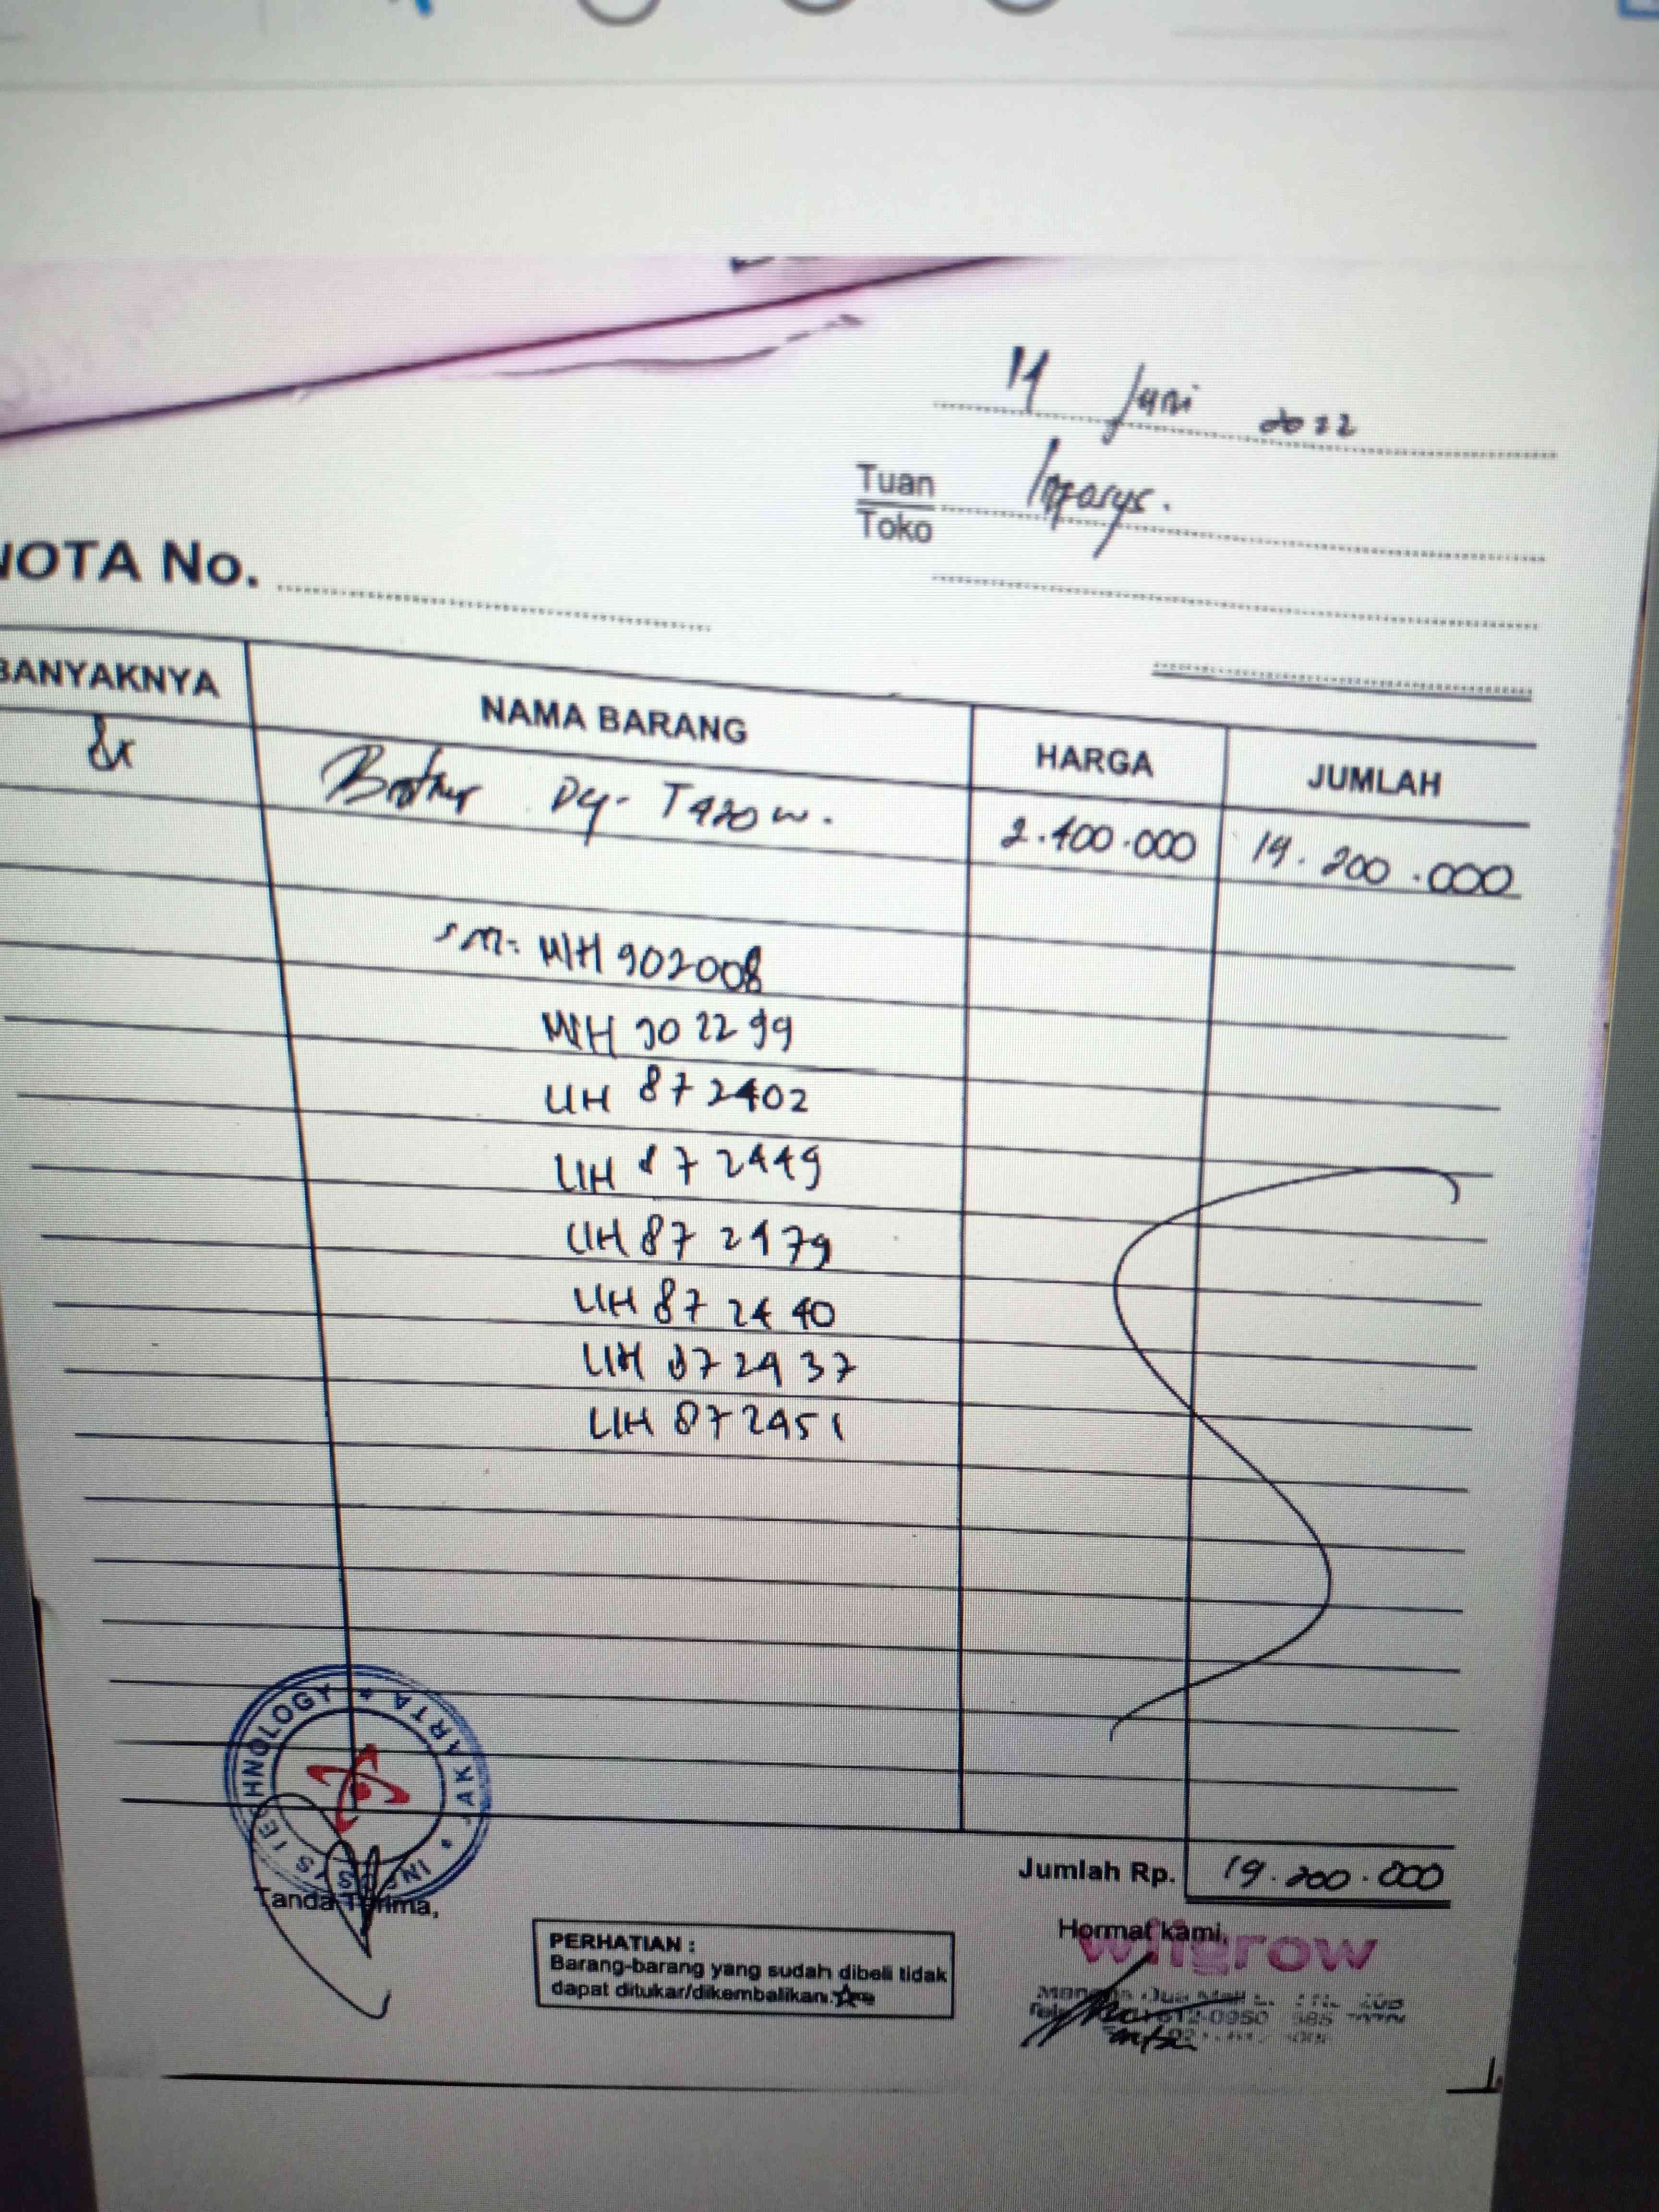 Juni 2022
Tuan
Toko
Infosys.
NOTA No.
BANYAKNYA
NAMA BARANG
HARGA
JUMLAH
Brother DCP-T420W.
2.400.000
19.200.000
SN:
902008
902299
UH 872402
UH 872449
UH 872479
UH 872440
UH 872437
UH 872451
Jumlah Rp.
19.200.000
INFOSYS TECHNOLOGY * JAKARTA *
Tanda Terima,
PERHATIAN :
Barang-barang yang sudah dibeli tidak
dapat ditukar/dikembalikan.
Hormat kami,
Mangga Dua Mall